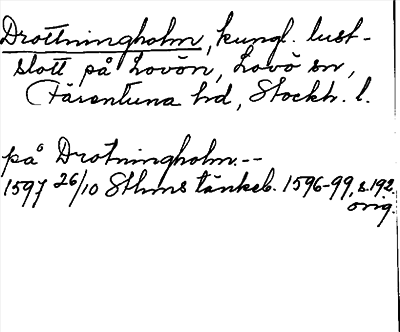 Drottningholm, kungl. lust-
slott på Lovön, Lovö sn,
Färentuna hd, Stockh. l.
på Drotningholm.--
1597 26/10 Sthms tänkeb. 1596-99, s. 192.
orig.